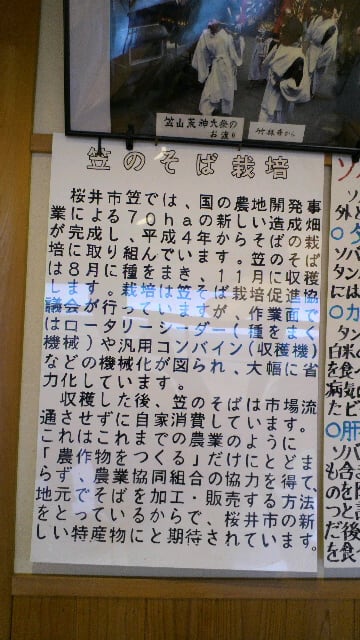 笠山荒神大祭の
お渡り
竹林寺から
笠のそば栽培
桜井市笠では、国の農地開発事
業による70haの新しい造成畑
が完成し、平成4年からそばの栽
培に取り組んでいます。笠のそば
は8月に種をまき、11月に収穫
します。栽培は笠そば栽培促進協
議会が行っていますが、作業面で
はロータリーシーダー(種をまく
機械)や汎用コンバイン(収穫機)
などの機械化が図られ、大幅に省
力化しています。
収穫した後、笠のそばは市場流
通させずに自家消費しています。
これはこれまでの農業のように
「農作物をつくる」だけにとどま
らず、農業協同組合の協力を得て、
地元でそばを加工・販売する方法
をとっているからで、桜井市の新
しい特産物にと期待されています。